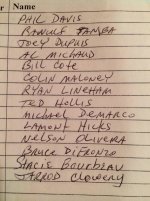 r Name
PHIL DAVIS
RAMULF TAMBA
JOEY DUPUIS
AL MICHAUD
Bill Cote
COLIN MALONEY
RYAN LINEHAM
TED HOLLIS
MICHAEL DEMARCO
LAMONT HICKS
NELSON OLIVERA
BRUCE DIFRONZO
STACIE
JARROD Clowery